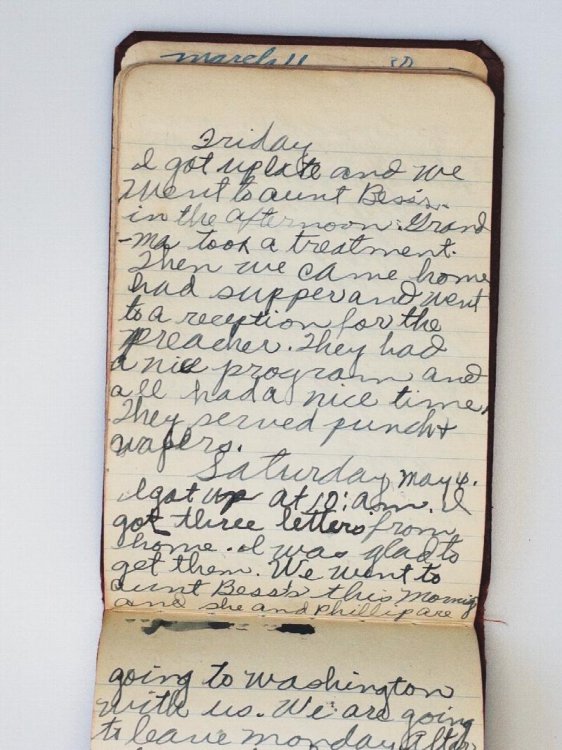 March 11
Friday
I got up late and we
went to aunt Bess's.
in the afternoon. Grand
-ma took a treatment.
Then we came home
had supper and went
to a reception for the
preacher. They had
a nice program and
all had a nice time.
They served punch &
wafers.
Saturday May 4.
I got up at 10:am. I
got three letters from
home. I was glad to
get them. We went to
aunt Bess's this morning
and she and Phillip are
going to washington
with us. We are going
to leave monday after